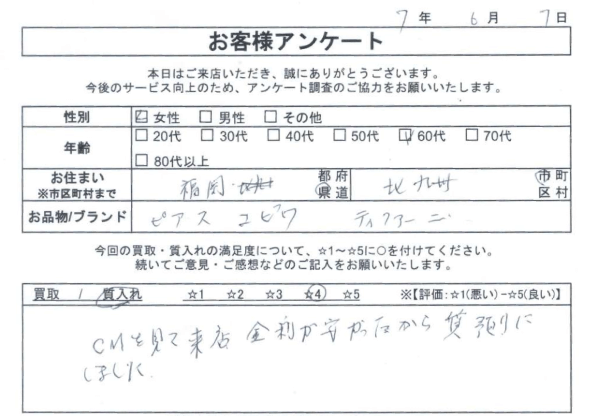 7年 6月 7日
お客様アンケート
本日はご来店いただき、誠にありがとうございます。
今後のサービス向上のため、アンケート調査のご協力をお願いいたします。
性別 □ 女性 □ 男性 □ その他
年齢 □ 20代 □ 30代 □ 40代 □ 50代 □ 60代 □ 70代
□ 80代以上
お住まい 福岡 都府県道 北九州 市町区村
※市区町村まで
お品物/ブランド ピアス ユビワ ティファニー
今回の買取・質入れの満足度について、☆1～☆5に○を付けてください。
続いてご意見・ご感想などのご記入をお願いいたします。
買取 / 質入れ ☆1 ☆2 ☆3 ☆4 ☆5 ※【評価:☆1(悪い)-☆5(良い)】
CMを見て来店 金利が安かったから 質預りに
しました